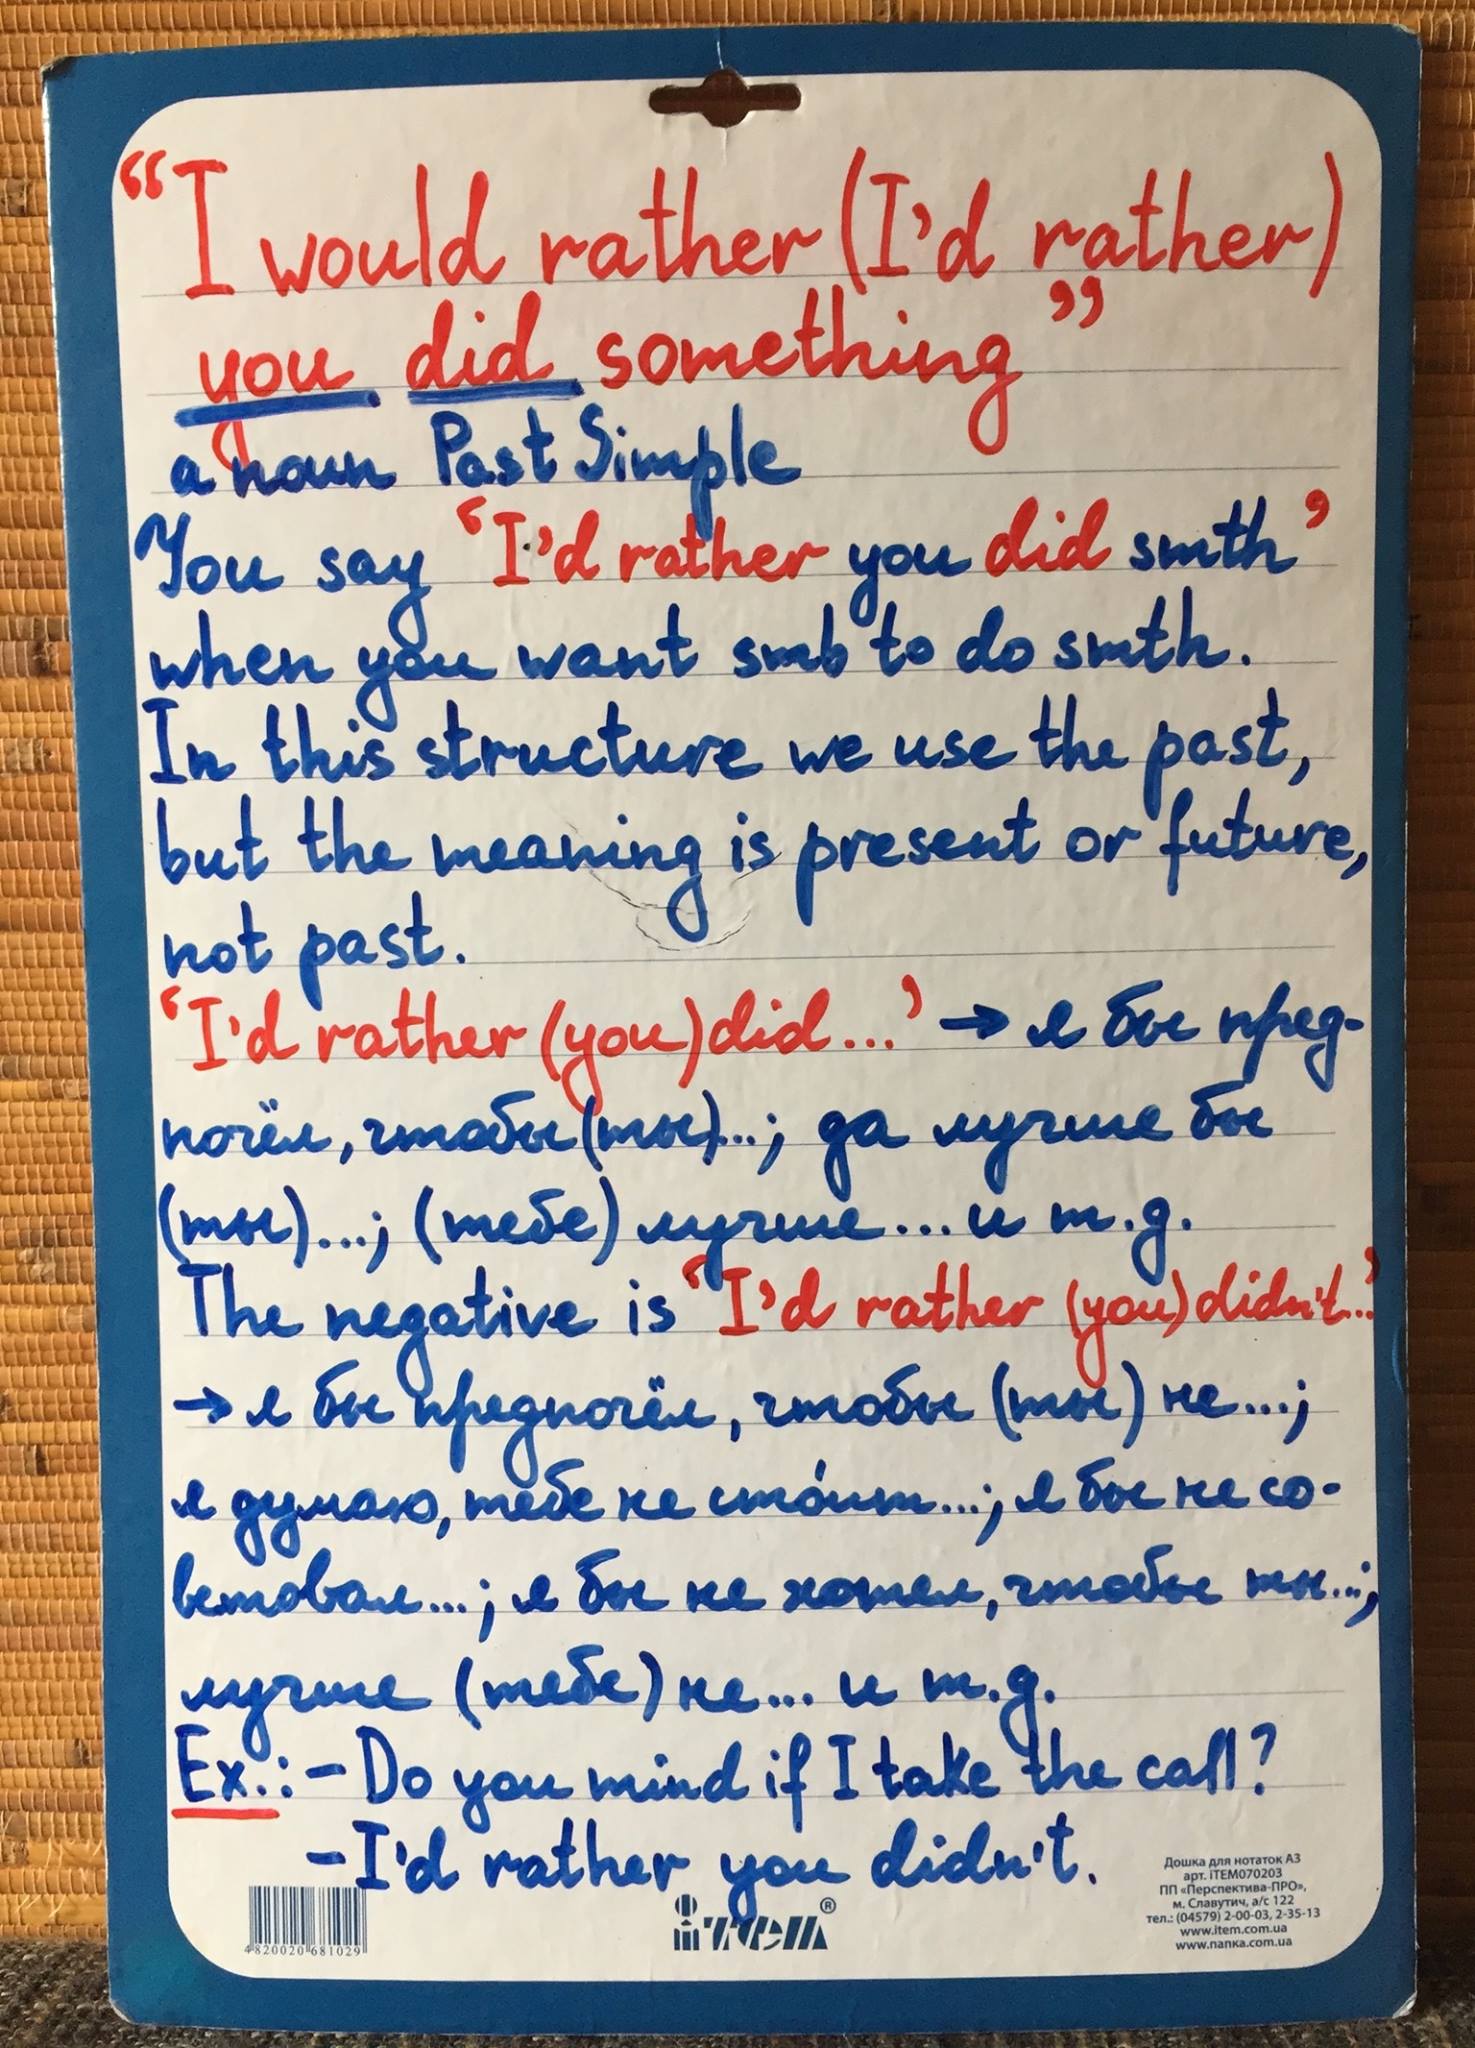 “I would rather (I'd rather)
you did something”
a noun Past Simple
You say ‘I'd rather you did smth’
when you want smb to do smth.
In this structure we use the past,
but the meaning is present or future,
not past.
‘I'd rather (you) did...’ → я бы пред-
почёл, чтобы (ты)...; да лучше бы
(ты)...; (тебе) лучше... и т.д.
The negative is ‘I'd rather (you) didn't...’
→ я бы предпочёл, чтобы (ты) не...;
я думаю, тебе не сто́ит...; я бы не со-
ветовал...; я бы не хотел, чтобы ты...;
лучше (тебе) не... и т.д.
Ex.: - Do you mind if I take the call?
- I'd rather you didn't.
4820020 681029
iтем®
Дошка для нотаток А3
арт. iTEM070203
ПП «Перспектива-ПРО»,
м. Славутич, а/с 122
тел.: (04579) 2-00-03, 2-35-13
www.item.com.ua
www.nanka.com.ua